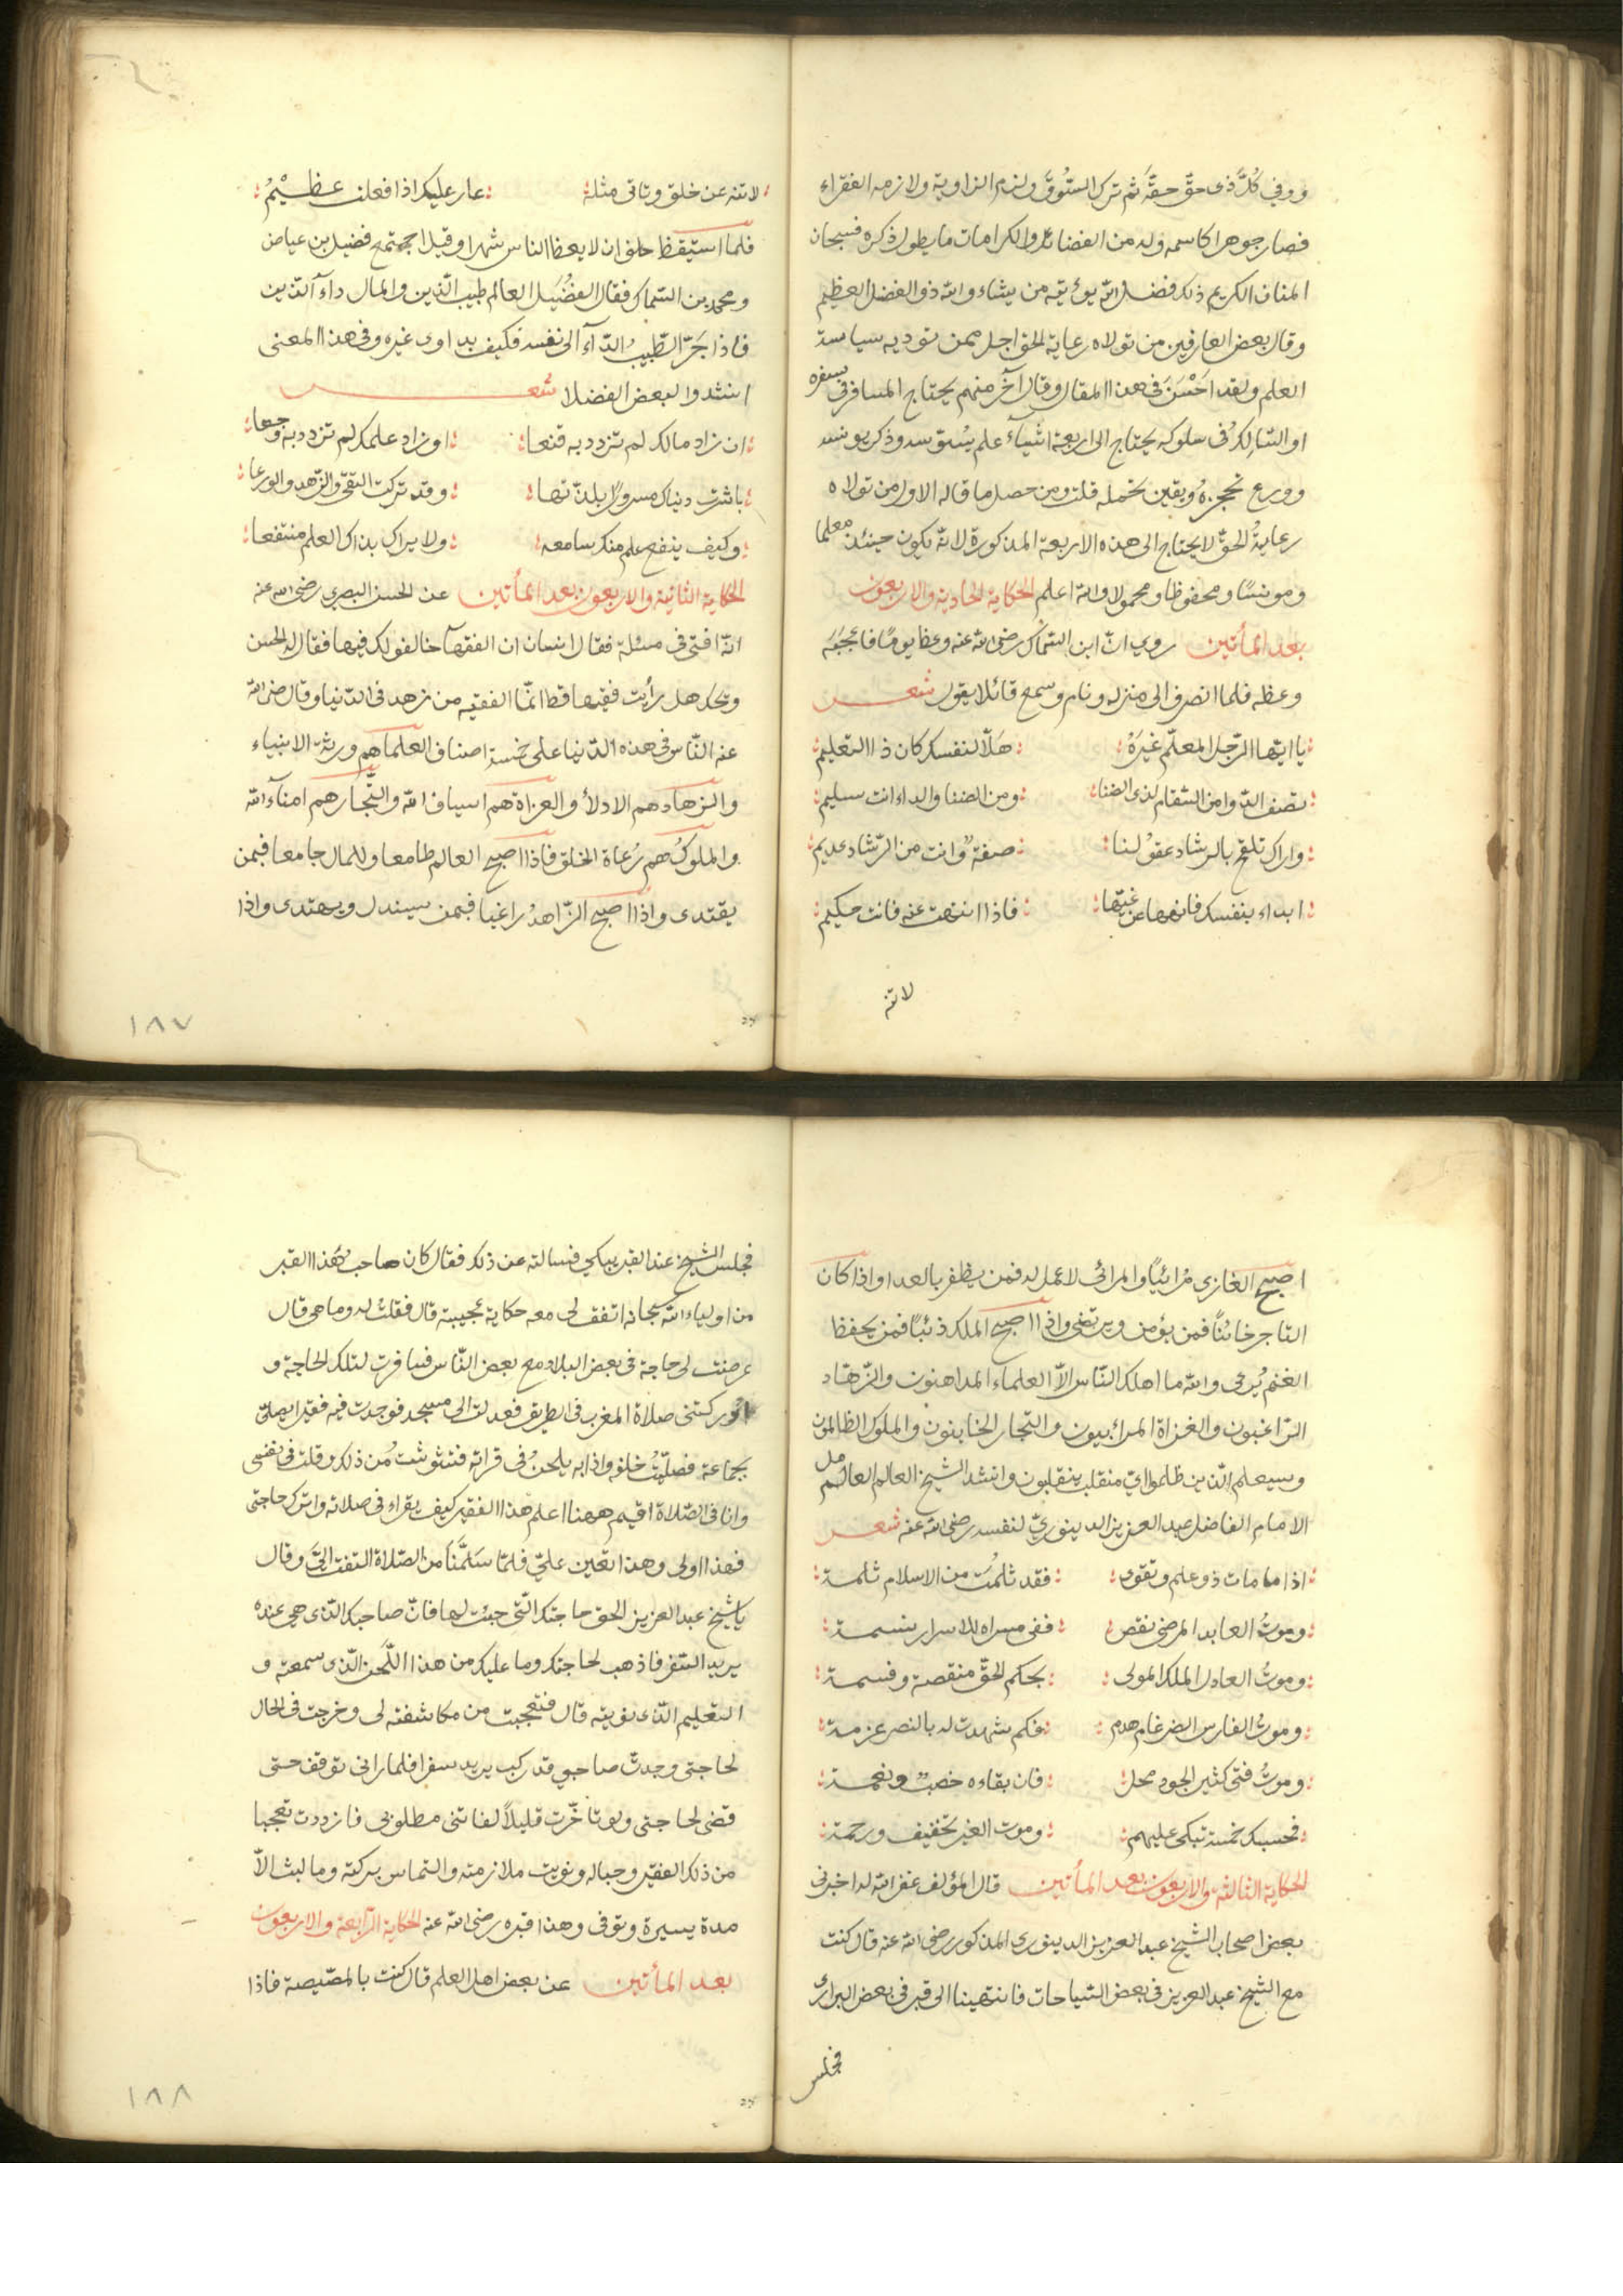 ووفى كُلَّ ذى حقّ حقّه ثم ترك السّوق ولزم الزاوية ولازمه الفقراء
فصار جوهرا كاسمه وله من الفضائل والكرامات ما يطول ذكره فسبحان
المنان الكريم ذلك فضل الله يؤتيه من يشاء والله ذو الفضل العظيم
وقال بعض العارفين من تولاه رعاية الحق اجل ممن تؤديه سياسة
العلم ولقد اَحْسَنَ فى هذا المقال وقال آخر منهم يحتاج المسافر فى سفره
او السّالك فى سلوكه يحتاج الى اربعة اشياء علم يسوسه وذكر يونسه
وورع يحجزه ويقين يحمله قلت ومن حصل ما قاله الاول من تولاه
رعاية الحقّ لا يحتاج الى هذه الاربعة المذكورة لانه يكون حينئذ معلما
ومونسًا ومحفوظا ومحمولا والله اعلم الحكاية الحادية والاربعون
بعد المأتين روى انّ ابن السّماك رضى الله عنه وعظ يومًا فاعجبه
وعظه فلما انصرف الى منزله ونام وسمع قائلا يقول شعر
يا ايّها الرّجل المعلّم غَيرَهُ : هَلّا لنفسك كان ذا التعليم
تصف الدّوا من السّقام لذى الضنا : ومن الضنا والداء انت سليم
واراك تلقح بالرشاد عقولنا : صفة وانت من الرّشاد عديم
ابداء بنفسك فانهها عن غيّها : فاذا انتهت عنه فانت حكيم
لا تنه
لا تنه عن خلق وتاتى مثله : عار عليك اذا فعلت عظيْمُ
فلما استيقظ حلف ان لا يعظ الناس شهرا وقيل اجتمع فضيل بن عياض
ومحمد بن السّماك فقال الفضُيَل العالم طبيب الدّين والمال داء الدّين
فاذا جَرّ الطّبيبُ الدّاء الى نفسه فكيف يداوى غيره وفى هذا المعنى
انشدوا لبعض الفضلا شعر
ان زاد مالك لم تزدد به قنعا : او زاد علمك لم تزدد به وجعا
باشرت دنياك مسرورًا بلذّتها : وقد تركت التقى والزّهد والورعا
وكيف ينفع علم منك سامعه : ولا يراك بذاك العلم منتفعا
الحكاية الثانية والاربعون بعد المأتين عن الحسن البصرى رضى الله عنه
انّه افتى فى مسئلة فقال انسان ان الفقهآ خالفوك فيها فقال له الحسن
ويحك هل رأيت فقيها قط انّما الفقيه من زهد فى الدّنيا وقال رضى الله
عنه النّاس فى هذه الدّنيا على خمسة اصناف العلماهم ورثة الانبياء
والزهاد هم الادلأ والغزاة هم اسياف الله والتّجار هم امنآء الله
والملوك هم رُعاة الخلق فاذا اصبح العالم طامعا وللمال جامعا فبمن
يقتدى واذا اصبح الزّاهدُ راغبا فبمن يستدل ويهتدى واذا
١٨٧
اصبح الغازى مُرائيًا والمرائى لا عمل له فمن يظفر بالعدا واذا كان
التاجر خائنًا فمن يؤمن ويرتضى واذا اصبح الملك ذئبًا فمن يحفظ
الغنم يُرعى والله ما اهلك النّاس الّا العلماء المداهنون والزّهاد
الرّاغبون والغزاة المرائيون والتجار الخاينون والملوك الظالمون
وسيعلم الّذين ظلموا ايّ منقلب ينقلبون وانشد الشيخ العالم العامل
الامام الفاضل عبد العزيز الدينوريّ لنفسه رضى الله عنه شعر
اذا ما مات ذو علم وتقوى : فقد ثلمت من الاسلام ثلمة
وموتُ العابد المرضى نقص : ففى مسراه للاسرار نسمة
وموتُ العادل الملك المولى : بحكم الحقّ منقصة وقسمة
وموتُ الفارس الضرغام هدم : فكم شهدت له بالنصر عزمة
وموتُ فتى كثير الجود محل : فان بقاءه خصبٌ ونعمة
فحسبك خمسة تبكى عليهم : وموت الغير تخفيف ورحمة
الحكاية الثالثة والاربعون بعد المأتين قال المؤلف غفر الله له اخبرنى
بعض اصحاب الشيخ عبد العزيز الدينورى المذكور رضى الله عنه قال كنت
مع الشيخ عبد العزيز فى بعض السّياحات فانتهينا الى قبر فى بعض البرارى
فجلس
فجلس الشيخ عند القبر يبكى فسالته عن ذلك فقال كان صاحب هذا القبر
من اولياء الله سبحانه اتفق لى معه حكاية عجيبة قال فقلت له وما هى قال
عرضت لى حاجة فى بعض البلاد مع بعض النّاس فسافرت لتلك الحاجة و
ادركتنى صلاة المغرب فى الطريق فعدلت الى مسجد فوجدت فيه فقيرا يصلى
بجماعة فصلّيتُ خلفه واذا به يلحن فى قراته فتشوشت من ذلك وقلت فى نفسى
وانا فى الصّلاة اقيم ههنا اعلم هذا الفقير كيف يقراء فى صلاته واترك حاجتى
فهذا اولى وهذا تعين علىّ فلمّا سَلّمنا من الصّلاة التفت الىّ وقال
يا شيخ عبد العزيز الحق حاجتك الّتى جئت لها فانّ صاحبك الذى هى عنده
يريد السّفر فاذهب لحاجتك وما عليك من هذا اللّحن الّذى سمعته و
التعليم الّذى نويته قال فتعجبت من مكاشفته لى وخرجت فى الحال
لحاجتى وجدت صاحبى قد ركب يريد سفرا فلما رانى توقف حتى
قضى لحاجتى ولو تاخّرت قليلًا لفاتنى مطلوبى فازددت تعجبا
من ذلك الفقير وحاله ونويت ملازمته والتماس بركته وما لبث الّا
مدة يسيرة وتوفى وهذا قبره رضى الله عنه الحكاية الرّابعة والاربعون
بعد المأتين عن بعض اهل العلم قال كنت بالمصّيصة فاذا
١٨٨